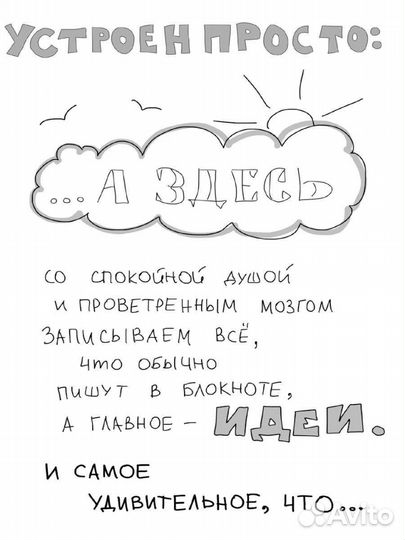 УСТРОЕН ПРОСТО:
...А ЗДЕСЬ
СО СПОКОЙНОЙ ДУШОЙ
И ПРОВЕТРЕННЫМ МОЗГОМ
ЗАПИСЫВАЕМ ВСЁ,
ЧТО ОБЫЧНО
ПИШУТ В БЛОКНОТЕ,
А ГЛАВНОЕ – ИДЕИ.
И САМОЕ
УДИВИТЕЛЬНОЕ, ЧТО...
Avito